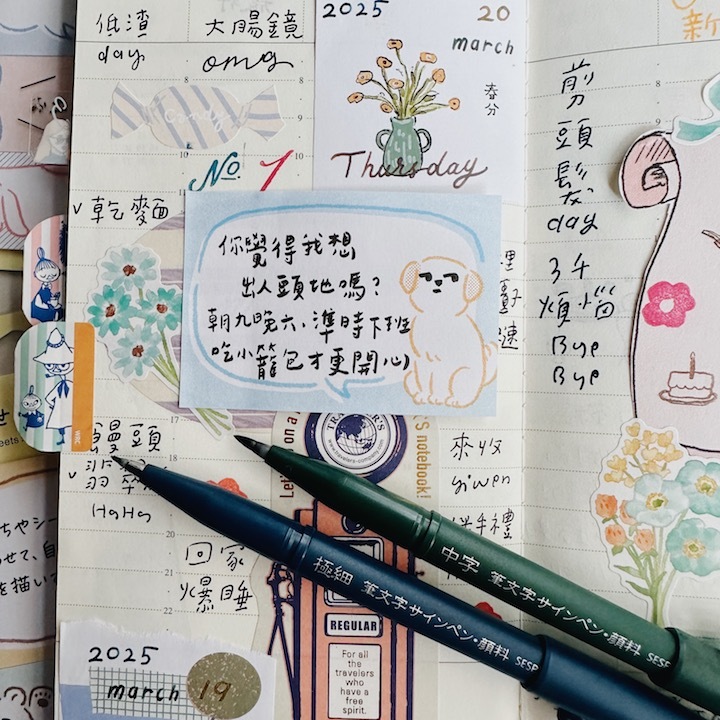 低渣
day
大腸鏡
omg
Candy
No. 1
2025 20
march
春分
Thursday
v 乾麵
你覺得我想
出人頭地嗎?
朝九晚六、準時下班
吃小籠包才更開心
饅頭
HaHa
回家
爆睡
來收
yiwen
伴手禮
2025
march 19
剪
頭
髮
day
3千
煩惱
Bye
Bye
新
S notebook!
www.travelers-company.com
REGULAR
For all
the travelers
who have a
free
spirit.
極細 筆文字サインペン・顔料
中字 筆文字サインペン・顔料
8
9
10
11
17
18
20
21
22